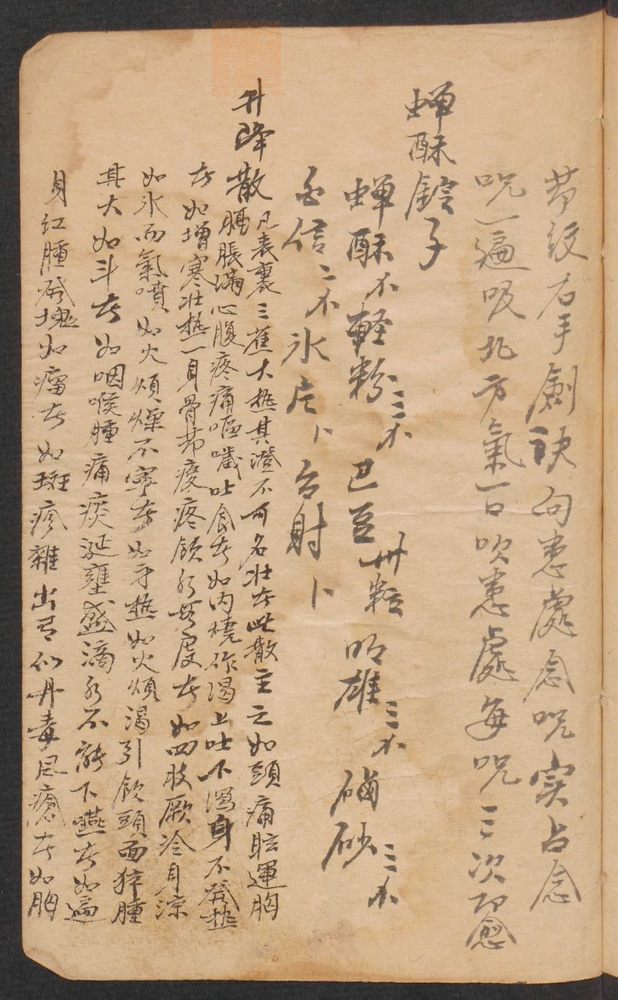 節紋右手劍訣向患處念咒实占念
咒一遍吸北方氣一口吹患處每咒三次即愈
蟬酥錠子
蟬酥 輕粉三 巴豆卅粒 明雄三 硇砂三
白信二 氷片 台射
升降散 凡表裏三蕉大熱其澄不可名壮者此散主之如頭痛眩運胸
膈脹滿心腹疼痛嘔噦吐食者如内燒作渴上吐下瀉身不發熱
者如增寒壮熱一身骨节痠疼飲水無度者如四肢厥冷身凉
如氷而氣噴如火煩燥不寧者如身熱如火煩渴引飲頭面猝腫
其大如斗者如咽喉腫痛痰涎壅盛滴水不能下嚥者如遍
身紅腫發塊如瘤者如斑疹雜出有似丹毒风瘡者如胸